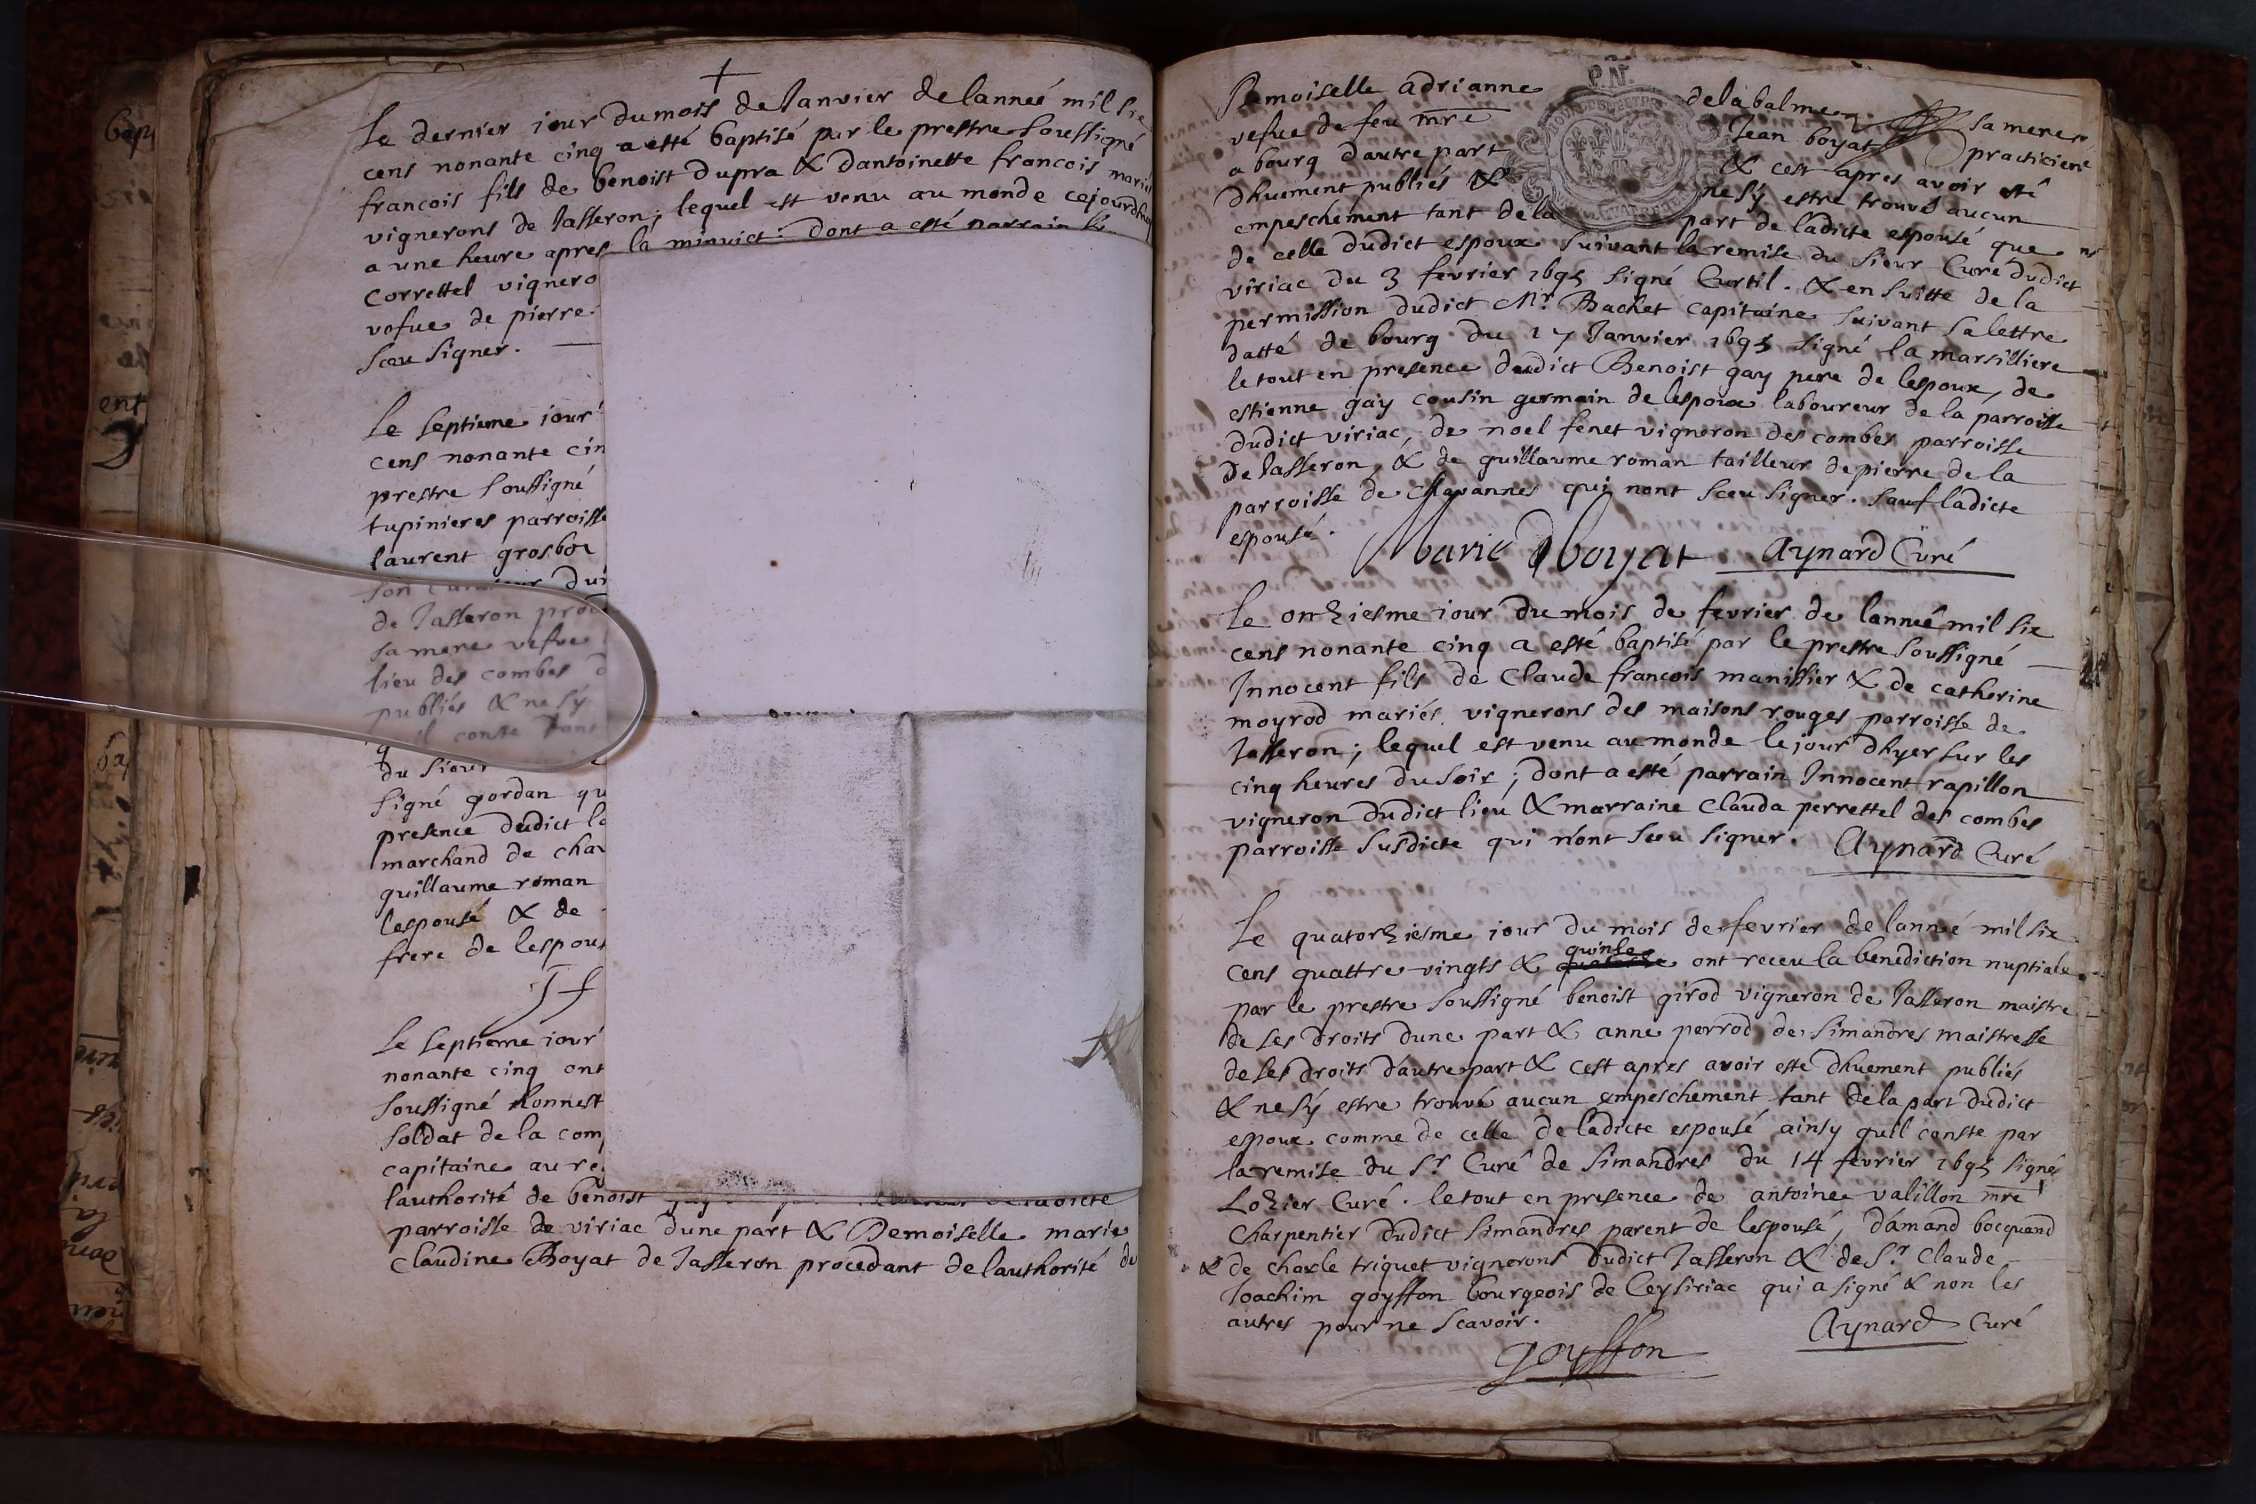 Le dernier iour du mois de Janvier de lanneé mil six
cens nonante cinq a esté baptisé par le prestre soussigné
francois fils de benoist dupra & dantoinette francois mariés
vignerons de Jasseron; lequel est venu au monde cejourdhuy
a une heure apres la minuict. dont a esté parrain
Correttel vignero
vefue de pierre
sceu signer.
Le septieme iour
cens nonante cin
prestre soussigné
tupinieres parroisse
laurent grosbo
son
de Jasseron pro
sa mere vefue
lieu des combes d
publiés & ne sÿ
conste tant
du sieur
signé gordan qu
presence dudict la
marchand de char
guillaume roman
lespousé & de
frere de lespous
Le septieme iour
nonante cinq ont
soussigné honnest
soldat de la com
capitaine au re
lauthorité de benoist
parroisse de viriac dune part & Demoiselle marie
Claudine Boyat de Jasseron procedant de lauthorité de
Demoiselle adrianne de la balme sa mere
vefue de feu mre Jean boyat practicien
a bourg dautre part & cest apres avoir esté
dhuement publiés & ne sÿ estre trouvé aucun
empeschement tant de la part de ladicte espousé que
de celle dudict espoux suivant la remise du sieur Curé dudict
viriac du 3 fevrier 1695 signé Curtil. & en suitte de la
permission dudict Mr. Bachet capitaine suivant sa lettre
datté de bourg du 17 Janvier 1695 signé la marsilliere
le tout en presence dudict Benoist gay pere de lespoux, de
estienne gay cousin germain de lespoux laboureur de la parroisse
dudict viriac, de noel fenet vigneron des combes parroisse
de Jasseron, & de guillaume roman tailleur de pierre de la
parroisse de chavannes qui nont sceu signer. sauf ladicte
espousé.
Marie Cboyat Aynard Curé
Le onziesme iour du mois de fevrier de lanneé mil six
cens nonante cinq a esté baptisé par le prestre soussigné
Innocent fils de Claude francois manissier & de catherine
moyrod mariés vignerons des maisons rouges parroisse de
Jasseron; lequel est venu au monde le jour dhyer sur les
cinq heures du soir; dont a esté parrain Innocent rapillon
vigneron dudict lieu & marraine Clauda perrettel des combes
parroisse susdicte qui nont sceu signer. Aynard Curé
Le quatorziesme iour du mois de fevrier de lanneé mil six
cens quattre vingts & quinse ont receu la benediction nuptiale
par le prestre soussigné benoist girod vigneron de Jasseron maistre
de ses droits dune part & anne perrod de simandres maistresse
de ses droits dautre part & cest apres avoir esté dhuement publiés
& ne sÿ estre trouvé aucun empeschement tant de la part dudict
espoux comme de celle de ladicte espousé ainsy quil conste par
la remise du sr Curé de simandres du 14 fevrier 1695 signé
Lozier Curé. le tout en presence de antoine valillon mre
Charpentier dudict simandres parent de lespousé, damand bocquand
& de charle triquet vignerons dudict Jasseron & de sr. Claude
Joachim goyffon bourgeois de Ceysiriac qui a signé & non les
autres pour ne scavoir.
goyffon Aynard Curé